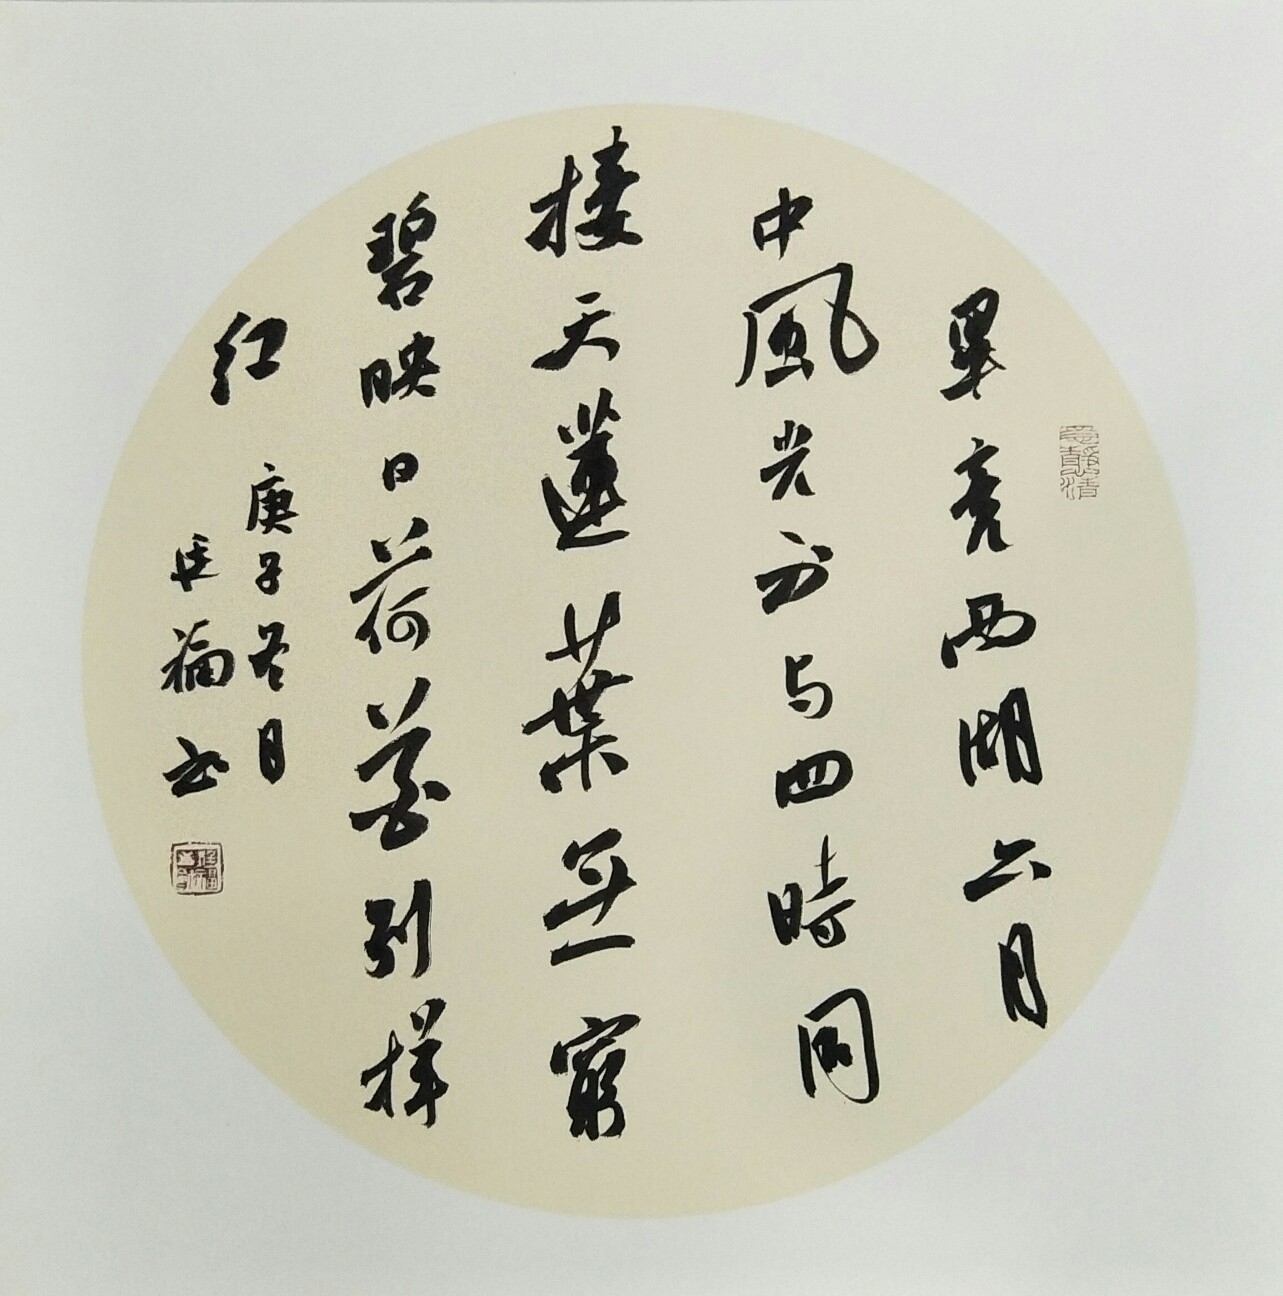 畢竟西湖六月
中風光不与四時同
接天蓮葉無窮
碧映日荷花別樣
红
庚子冬月
福书